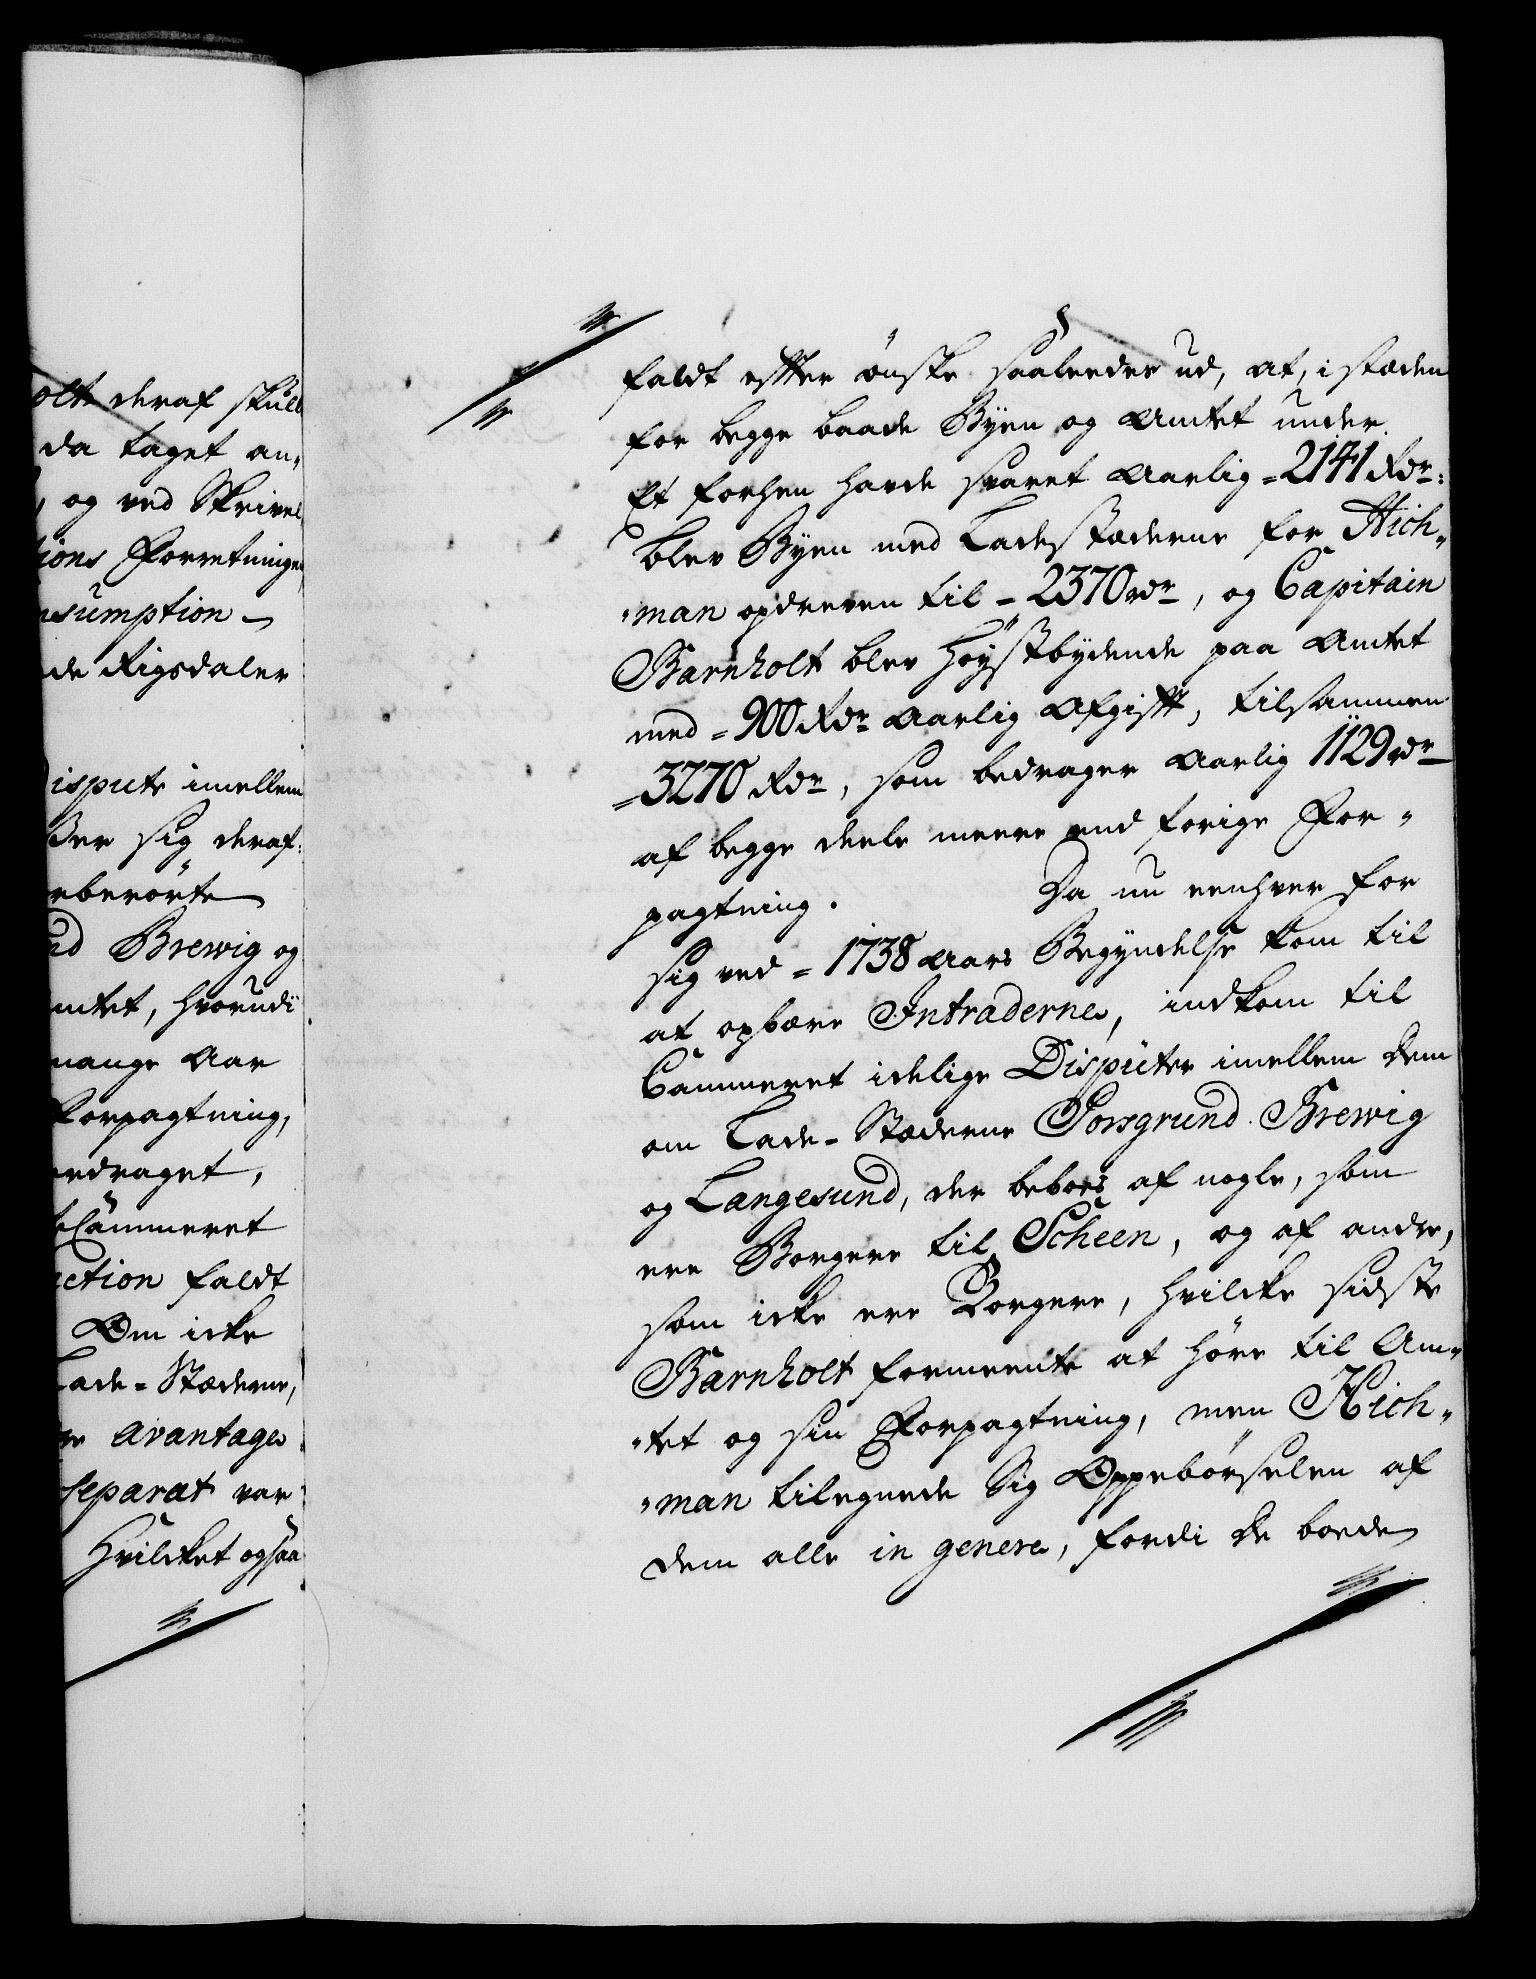 olte deraf skuld
da taget an„
, og ved Skrivel
tions Forretningen
nsumption
de Rigsdaler
isputs imellem
ßer sig deraf:
rberörte
nd Brewig og
mtet, hvorudi
mange Aar
Forpagtning,
nedraget,
Cammeret
ction faldt
Om icke
Lade-Stæderne,
re avantage
separat var
Hvilcket ogsaa
faldt effter ønske saaleedes ud, at, i stæden
for begge baade Byen og Amtet under
Et forhen havde svaret Aarlig = 2141 Rdr:
blev Byen med Ladestæderne for Hich„
„man opdreven til = 2370 rdr, og Capitain
Barnholt blev Höystbydende paa Amtet
med = 900 Rdr Aarlig Afgifft, tilsammen
= 3270 Rdr, som bedrager Aarlig 1129 rdr
af begge deele meere end forige For„
pagtning. Da nu eenhver for
sig ved = 1738 Aars Begyndelse kom til
at opbære Intraderne, indkom til
Cammeret idelige Disputer imellem dem
om Lade-Stæderne Porsgrund Brewig
og Langesund, der beboes af nogle, som
ere Borgere til Scheen, og af andre,
som icke ere Borgere, hvilcke sidste
Barnholt formeente at höre til Am„
„tet og sin Forpagtning, men Hich„
„man tilegnede Sig Oppebörselen af
dem alle in genere, fordi de boede